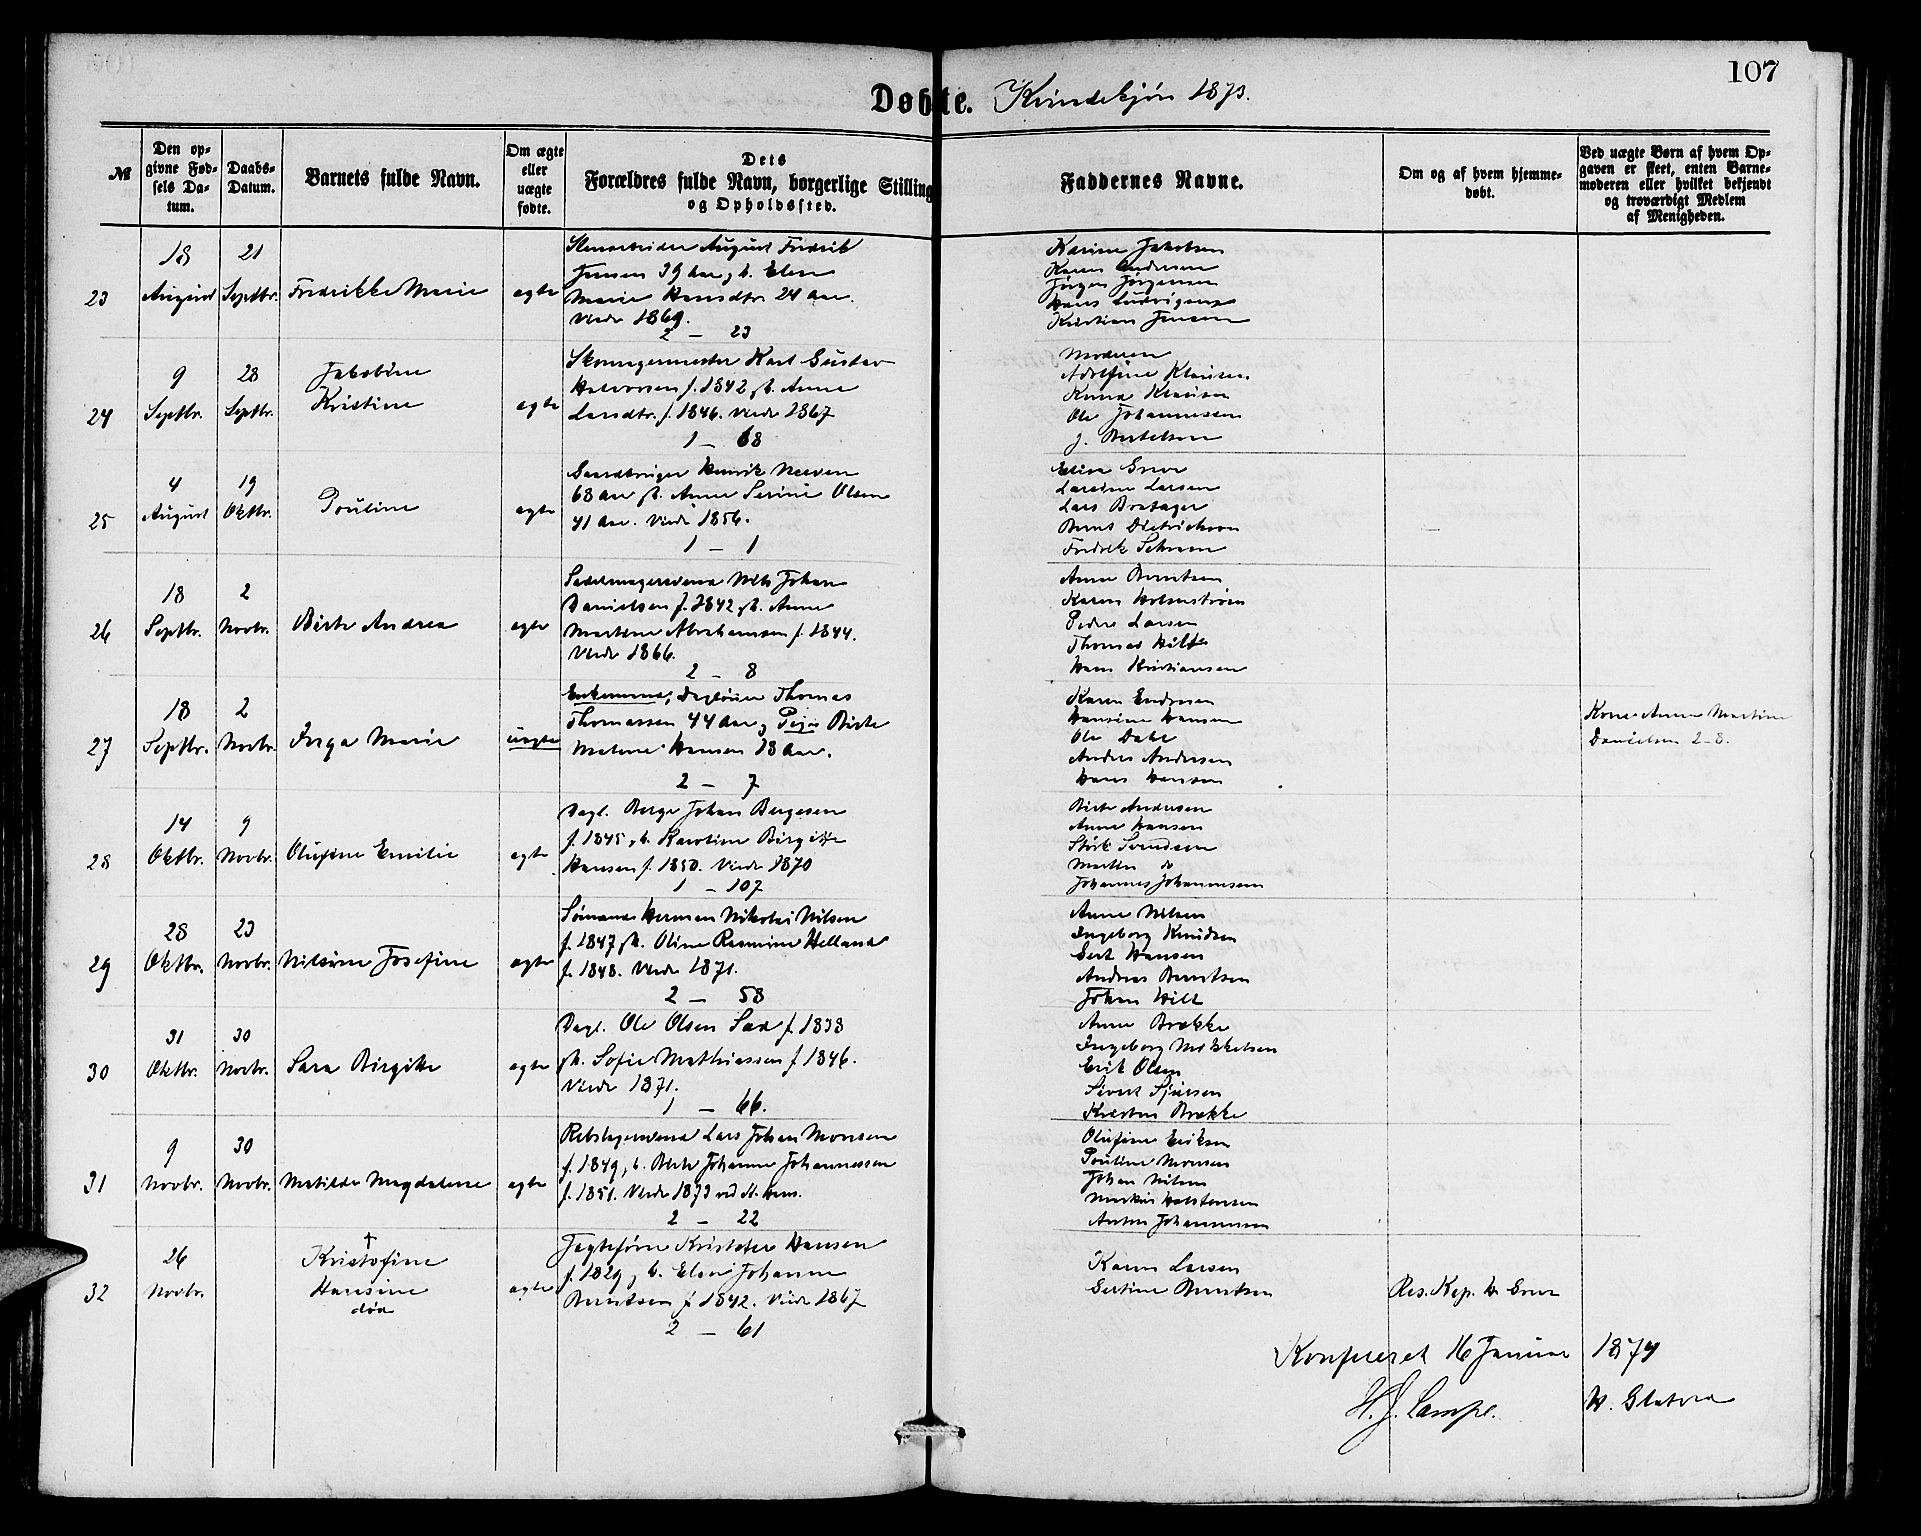 107
Døbte. Kvindekjøn 1873.
№
Den op-
givne Fød-
sels Da-
tum.
Daabs-
Datum.
Barnets fulde Navn.
Om ægte
eller
uægte
fødte.
Dets
Forældres fulde Navn, borgerlige Stilling
og Opholdssted.
Faddernes Navne.
Om og af hvem hjemme-
døbt.
Ved uægte Børn af hvem Op-
gaven er skeet, enten Barne-
moderen eller hvilket bekjendt
og troværdigt Medlem
af Menigheden.
23
18
August
21
Septbr.
Fredrikke Marie
ægte
August Fredrik
Jensen 39 Aar, h. Elen
Marie Hansdtr. 24 Aar.
Viede 1869.
2 — 23
Karine Jakobsen
Karen Andersen
Jørgen Jørgensen
Hans Ludvigsen
Kristian Jensen
24
9
Septbr.
28
Septbr.
Jakobine
Kristine
ægte
Skomagermester Karl Gustav
Halvorsen f. 1842, h. Anne
Larsdtr. f. 1846. Viede 1867
1 — 68
Moderen
Adolfine Klausen.
Knud Klausen
Ole Johannesen
J. Bertelsen
25
4
August
19
Oktbr.
Pouline
ægte
Gaardbruger Henrik
68 Aar, h. Anne Serine Olsen
41 Aar. Viede 1856.
1 — 1
Elisa Greve
Larsine Larsen
Lars Bratager
Bernt Dietrichson
Fredrik Schram
26
18
Septbr.
2
Novbr.
Birte Andrea
ægte
Sadelmagersvend Nils Johan
Danielsen f. 1842, h. Anne
Martine Abrahamsen f. 1844.
Viede 1866.
2 — 8
Anne Berntsen
Karen Holmstrøm
Peder Larsen
Thomas Hilt
Hans Kristiansen
27
18
Septbr.
2
Novbr.
Inga Marie
uægte
Enkemand, Dagleier Thomas
Thomassen 44 Aar, Pige Birte
Malene Hansen 23 Aar.
2 — 7
Karen Endresen
Hansine Hansen
Ole Dahl
Andreas Andersen
Hans Hansen
Kone Anne Martine
Danielsen 2-8.
28
14
Oktbr.
9
Novbr.
Olufine Emilie
ægte
Dagl. Berge Johan Bergesen
f. 1845, h. Karoline Birgitte
Hansen f. 1850. Viede 1870
1 — 107
Birte Andersen
Anne Hansen
Størk Svendsen
Marthe do
Johannes Johannesen
29
28
Oktbr.
23
Novbr.
Nilsine Josefine
ægte
Sømand Herman Nikolai Nilsen
f. 1847, h. Oline Rasmine Helland
f. 1848. Viede 1871.
2 — 58
Anne Nilsen
Ingeborg Knudsen
Gert Hansen
Andreas Berntsen
Johan Hilt
30
31
Oktbr.
30
Novbr.
Sara Birgitte
ægte
Dagl. Ole Olsen f. 1838
h. Sofie Mathiassen f. 1846.
Viede 1871.
1 — 66.
Anne Brække
Ingeborg Mikkelsen
Erik Olsen
Sivert Sjursen
Kristen Brække
31
9
Novbr.
30
Novbr.
Matilde Magdalene
ægte
Rebslagersvend Lars Johan Monsen
f. 1849, h. Berte Johanne Johannessen
f. 1851. Viede 1873
2 — 22
Olufine Eriksen
Pouline Monsen
Johan Nilsen
Markus Halstensen
Anton Johannesen
32
26
Novbr.
†
Kristofine
Hansine
død
ægte
Jagtefører Kristofer Hansen
f. 1829, h. Elen Johanne
Berntsen f. 1842. Viede 1867
2 — 61
Karen Larsen
Gertine Berntsen
Res. Kap. H. Greve
Konfereret 16 Januar 1874
H. J. Lampe.